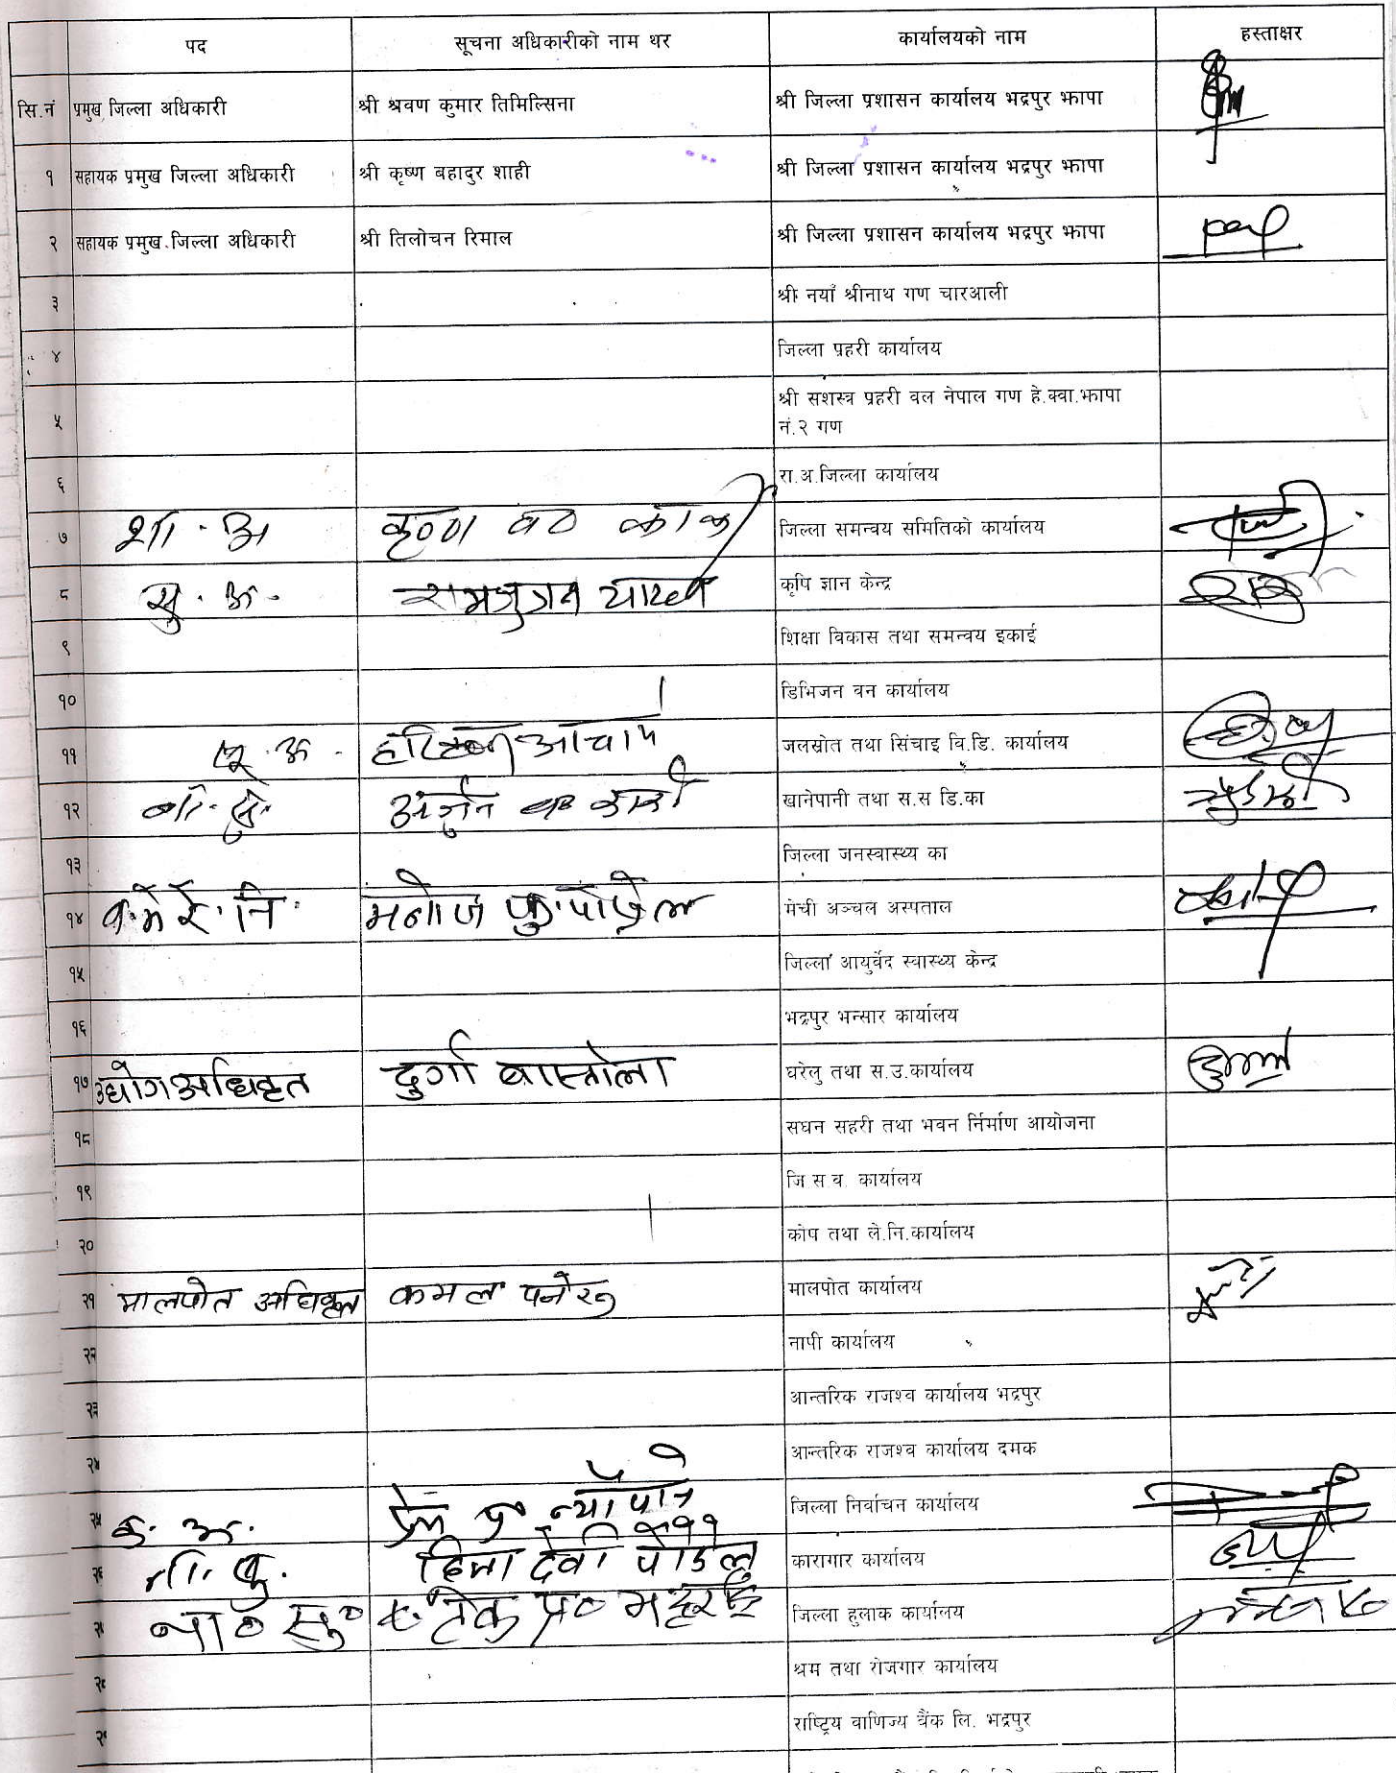 पद सूचना अधिकारीको नाम थर कार्यालयको नाम हस्ताक्षर
सि.नं प्रमुख जिल्ला अधिकारी श्री श्रवण कुमार तिमिल्सिना श्री जिल्ला प्रशासन कार्यालय भद्रपुर झापा
१ सहायक प्रमुख जिल्ला अधिकारी श्री कृष्ण बहादुर शाही श्री जिल्ला प्रशासन कार्यालय भद्रपुर झापा
२ सहायक प्रमुख जिल्ला अधिकारी श्री तिलोचन रिमाल श्री जिल्ला प्रशासन कार्यालय भद्रपुर झापा
३ श्री नयाँ श्रीनाथ गण चारआली
४ जिल्ला प्रहरी कार्यालय
५ श्री सशस्त्र प्रहरी वल नेपाल गण हे.क्वा.झापा
नं.२ गण
६ रा.अ.जिल्ला कार्यालय
७ शा.अ कृष्ण व० कार्की जिल्ला समन्वय समितिको कार्यालय
८ सु.अ. यादव कृषि ज्ञान केन्द्र
९ शिक्षा विकास तथा समन्वय इकाई
१० डिभिजन वन कार्यालय
११ सू.अ. आचार्य जलस्रोत तथा सिंचाइ वि.डि. कार्यालय
१२ अर्जुन खानेपानी तथा स.स डि.का
१३ जिल्ला जनस्वास्थ्य का
१४ मनोज कु. पोखरेल मेची अञ्चल अस्पताल
१५ जिल्ला आयुर्वेद स्वास्थ्य केन्द्र
१६ भद्रपुर भन्सार कार्यालय
१७ उद्योग अधिकृत दुर्गा बास्तोला घरेलु तथा स.उ.कार्यालय
१८ सघन सहरी तथा भवन र्निर्माण आयोजना
१९ जि स.व. कार्यालय
२० कोप तथा ले.नि.कार्यालय
२१ मालपोत अधिकृत कमल पनेरु मालपोत कार्यालय
२२ नापी कार्यालय
२३ आन्तरिक राजश्व कार्यालय भद्रपुर
२४ आन्तरिक राजश्व कार्यालय दमक
२५ क.अ. प्रेम प्र न्यौपाने जिल्ला निर्वाचन कार्यालय
ना.सु. देवी पौडेल कारागार कार्यालय
ना० सु० टेक प्र० जिल्ला हुलाक कार्यालय
श्रम तथा रोजगार कार्यालय
राष्ट्रिय वाणिज्य बैंक लि. भद्रपुर